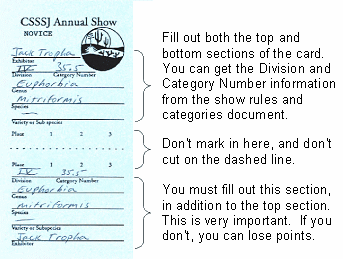 CSSSJ Annual Show
NOVICE
Jack Tropha
Exhibitor
IV 35.5
Division Category Number
Euphorbia
Genus
Mitriformis
Species
Variety or Sub species
Place 1 2 3
Place 1 2 3
IV 35.5
Division Category Number
Euphorbia
Genus
mitriformis
Species
Variety or Subspecies
Jack Tropha
Exhibitor
Fill out both the top and
bottom sections of the card.
You can get the Division and
Category Number information
from the show rules and
categories document.
Don't mark in here, and don't
cut on the dashed line.
You must fill out this section,
in addition to the top section.
This is very important. If you
don't, you can lose points.